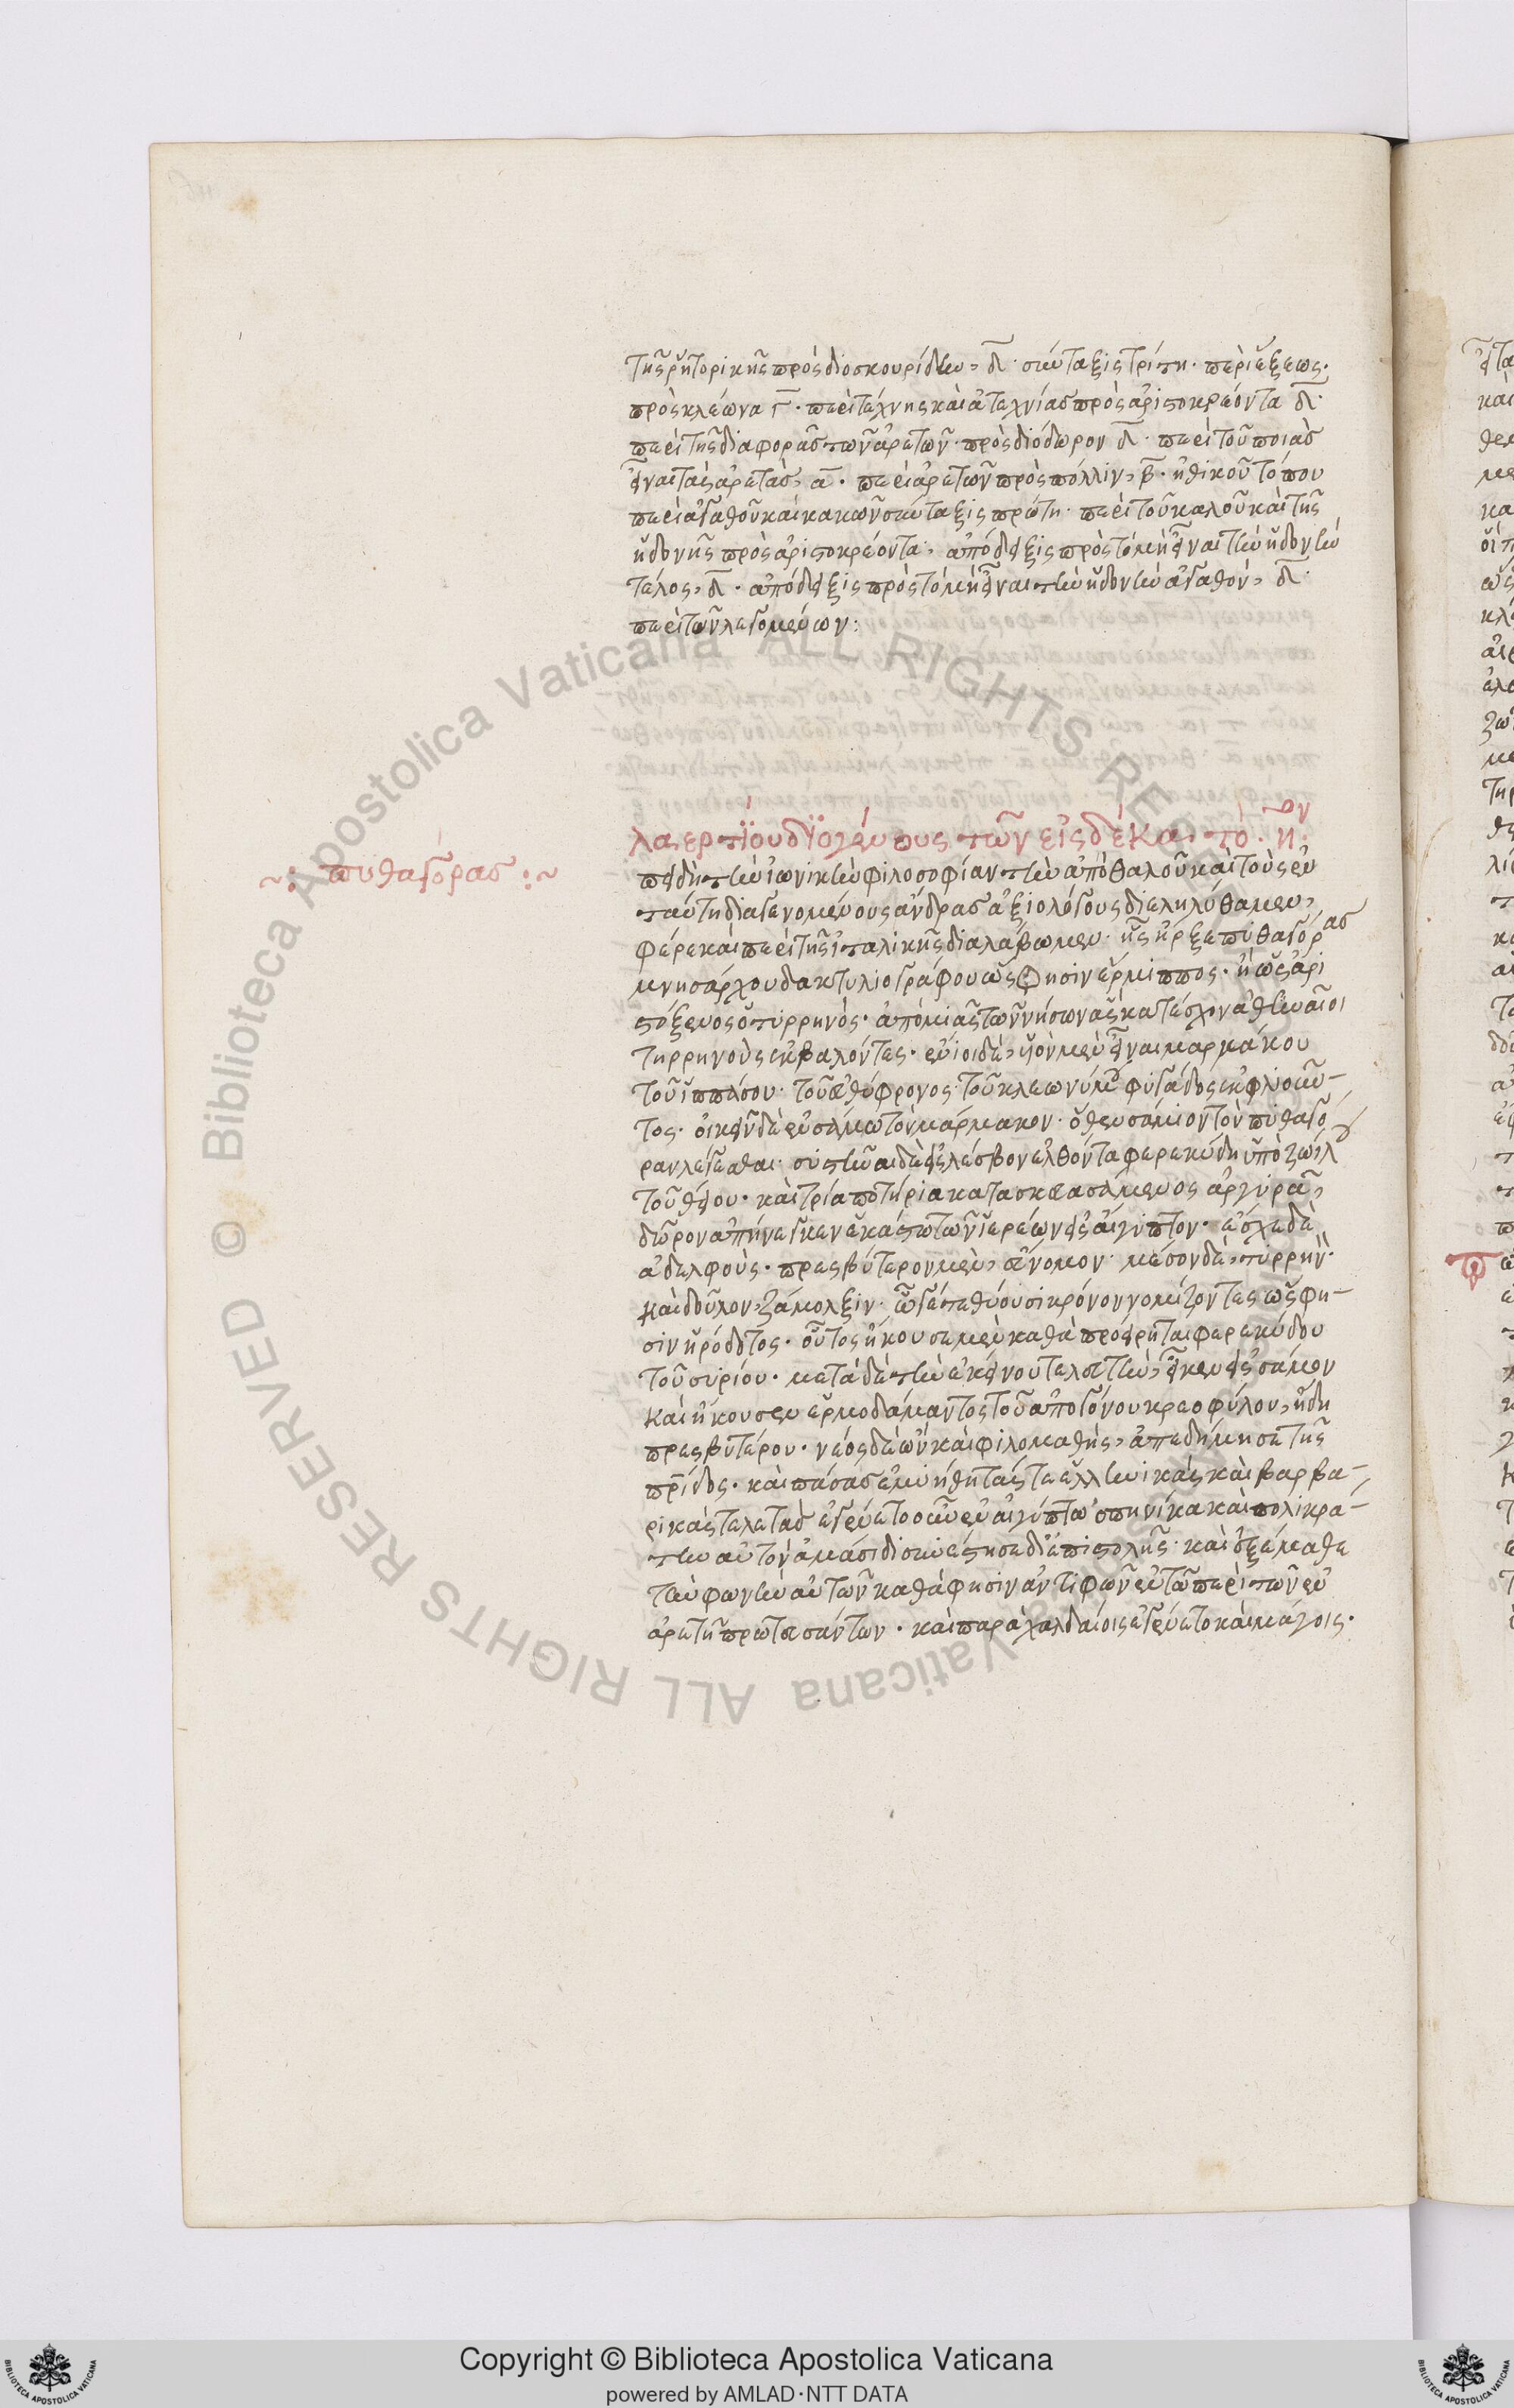 τῆς ῥητορικῆς πρὸς διοσκουρίδην, δ̅· σύνταξις τρίτη· περὶ ἕξεως·
πρὸς κλέωνα γ̅· περὶ τέχνης καὶ ἀτεχνίας πρὸς ἀριστοκρέοντα δ̅·
περὶ τῆς διαφορᾶς τῶν ἀρετῶν· πρὸς διόδωρον δ̅· περὶ τοῦ ποιὰς
εἶναι τὰς ἀρετὰς, α̅· περὶ ἀρετῶν πρὸς πόλλιν, β̅· ἠθικοῦ τόπου
περὶ ἀγαθοῦ καὶ κακῶν σύνταξις πρώτη· περὶ τοῦ καλοῦ καὶ τῆς
ἡδονῆς πρὸς ἀριστοκρέοντα, ἀπόδειξις πρὸς τὸ μὴ εἶναι τὴν ἡδονὴν
τέλος, δ̅· ἀπόδειξις πρὸς τὸ μὴ εἶναι τὴν ἡδονὴν ἀγαθόν, δ̅·
περὶ τῶν λεγομένων:
λαερτίου διογένους τῶν εἰς δέκα τὸ ·η̅·ον
~: πυθαγόρας :~
πειδὴ τὴν ἰωνικὴν φιλοσοφίαν τὴν ἀπὸ θαλοῦ καὶ τοὺς ἐν
ταύτῃ διαγενομένους ἄνδρας ἀξιολόγους διεληλύθαμεν,
φέρε καὶ περὶ τῆς ἰταλικῆς διαλάβωμεν· ἧς ἦρξε πυθαγόρας
μνησάρχου δακτυλιογράφου ὥς φησιν ἕρμιππος· ἢ ὡς ἀρι
στόξενος ὁ τυρρηνὸς· ἀπὸ μιᾶς τῶν νήσων ἃς κατέσχον ἀθηναῖοι
τηρρηνοὺς ἐκβαλόντες· ἔνιοι δὲ, υἱὸν μὲν εἶναι μαρμάκου
τοῦ ἱππάσου· τοῦ εὐθύφρονος· τοῦ κλεωνύμου φυγάδος ἐκ φλιοῦν-
τος· οἰκεῖν δὲ ἐν σάμῳ τὸν μάρμακον· ὅθεν σάμιον τὸν πυθαγό
ραν λέγεσθαι· συστῆναι δὲ εἰς λέσβον ἐλθόντα φερεκύδῃ ὑπὸ ζωίλου
τοῦ θείου· καὶ τρία ποτήρια κατασκευασάμενος ἀργυρᾶ,
δῶρον ἀπήνεγκεν ἑκάστῳ τῶν ἱερέων εἰς αἴγυπτον· ἔσχε δὲ
ἀδελφοὺς· πρεσβύτερον μὲν, εὔνομον· μέσον δὲ, τυρρην·
καὶ δοῦλον, ζάμολξιν· ᾧ γέται θύουσι κρόνον νομίζοντες ὥς φη-
σιν ἡρόδοτος· οὗτος ἤκουσε μὲν καθὰ προείρηται φερεκύδου
τοῦ συρίου· μετὰ δὲ τὴν ἐκείνου τελευτὴν, ἧκεν εἰς σάμον
καὶ ἤκουσεν ἑρμοδάμαντος τοῦ ἀπογόνου κρεοφύλου, ἤδη
πρεσβυτέρου· νέος δὲ ὢν καὶ φιλομαθὴς, ἀπεδήμησε τῆς
πρίδος· καὶ πάσας ἐμυήθη τάς τε ἑλληνικὰς καὶ βαρβα-
ρικὰς τελετὰς ἐγένετο οὖν ἐν αἰγύπτῳ ὁπηνίκα καὶ πολικρά-
την αὐτὸν ἀμάσιδι συνέστησε δι' ἐπιστολῆς· καὶ ἐξέμαθε
τὴν φωνὴν αὐτῶν καθά φησιν ἀντιφῶν ἐν τῷ περὶ τῶν ἐν
ἀρετῇ πρωτευσάντων· καὶ παρὰ χαλδαίοις ἐγένετο καὶ μάγοις·
Biblioteca Apostolica Vaticana ALL RIGHTS RESERVED ©
Copyright © Biblioteca Apostolica Vaticana
powered by AMLAD·NTT DATA
BIBLIOTECA APOSTOLICA VATICANA
BIBLIOTECA APOSTOLICA VATICANA